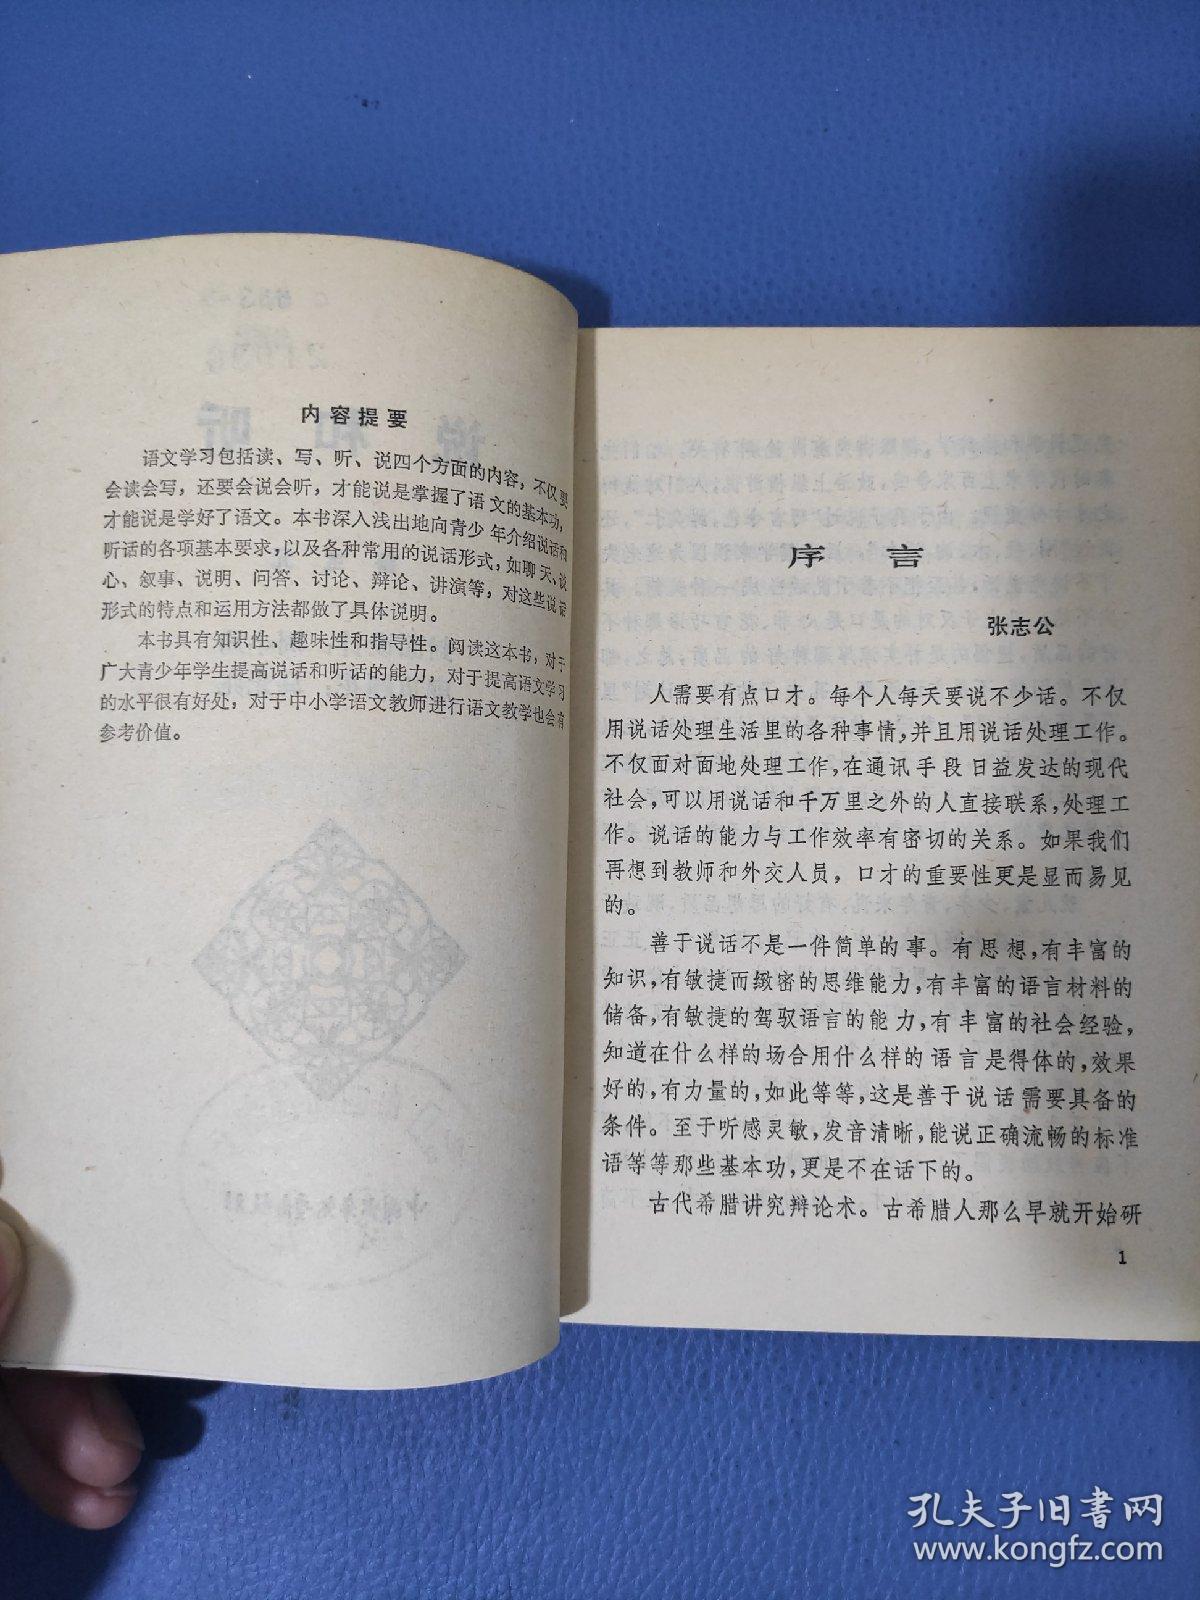 内容提要
语文学习包括读、写、听、说四个方面的内容，不仅要
会读会写，还要会说会听，才能说是掌握了语文的基本功，
才能说是学好了语文。本书深入浅出地向青少年介绍说话和
听话的各项基本要求，以及各种常用的说话形式，如聊天、谈
心、叙事、说明、问答、讨论、辩论、讲演等，对这些说话
形式的特点和运用方法都做了具体说明。
本书具有知识性、趣味性和指导性。阅读这本书，对于
广大青少年学生提高说话和听话的能力，对于提高语文学习
的水平很有好处，对于中小学语文教师进行语文教学也会有
参考价值。
序言
张志公
人需要有点口才。每个人每天要说不少话。不仅
用说话处理生活里的各种事情，并且用说话处理工作。
不仅面对面地处理工作，在通讯手段日益发达的现代
社会，可以用说话和千万里之外的人直接联系，处理工
作。说话的能力与工作效率有密切的关系。如果我们
再想到教师和外交人员，口才的重要性更是显而易见
的。
善于说话不是一件简单的事。有思想，有丰富的
知识，有敏捷而緻密的思维能力，有丰富的语言材料的
储备，有敏捷的驾驭语言的能力，有丰富的社会经验，
知道在什么样的场合用什么样的语言是得体的，效果
好的，有力量的，如此等等，这是善于说话需要具备的
条件。至于听感灵敏，发音清晰，能说正确流畅的标准
语等等那些基本功，更是不在话下的。
古代希腊讲究辩论术。古希腊人那么早就开始研
1
孔夫子旧书网
www.kongfz.com